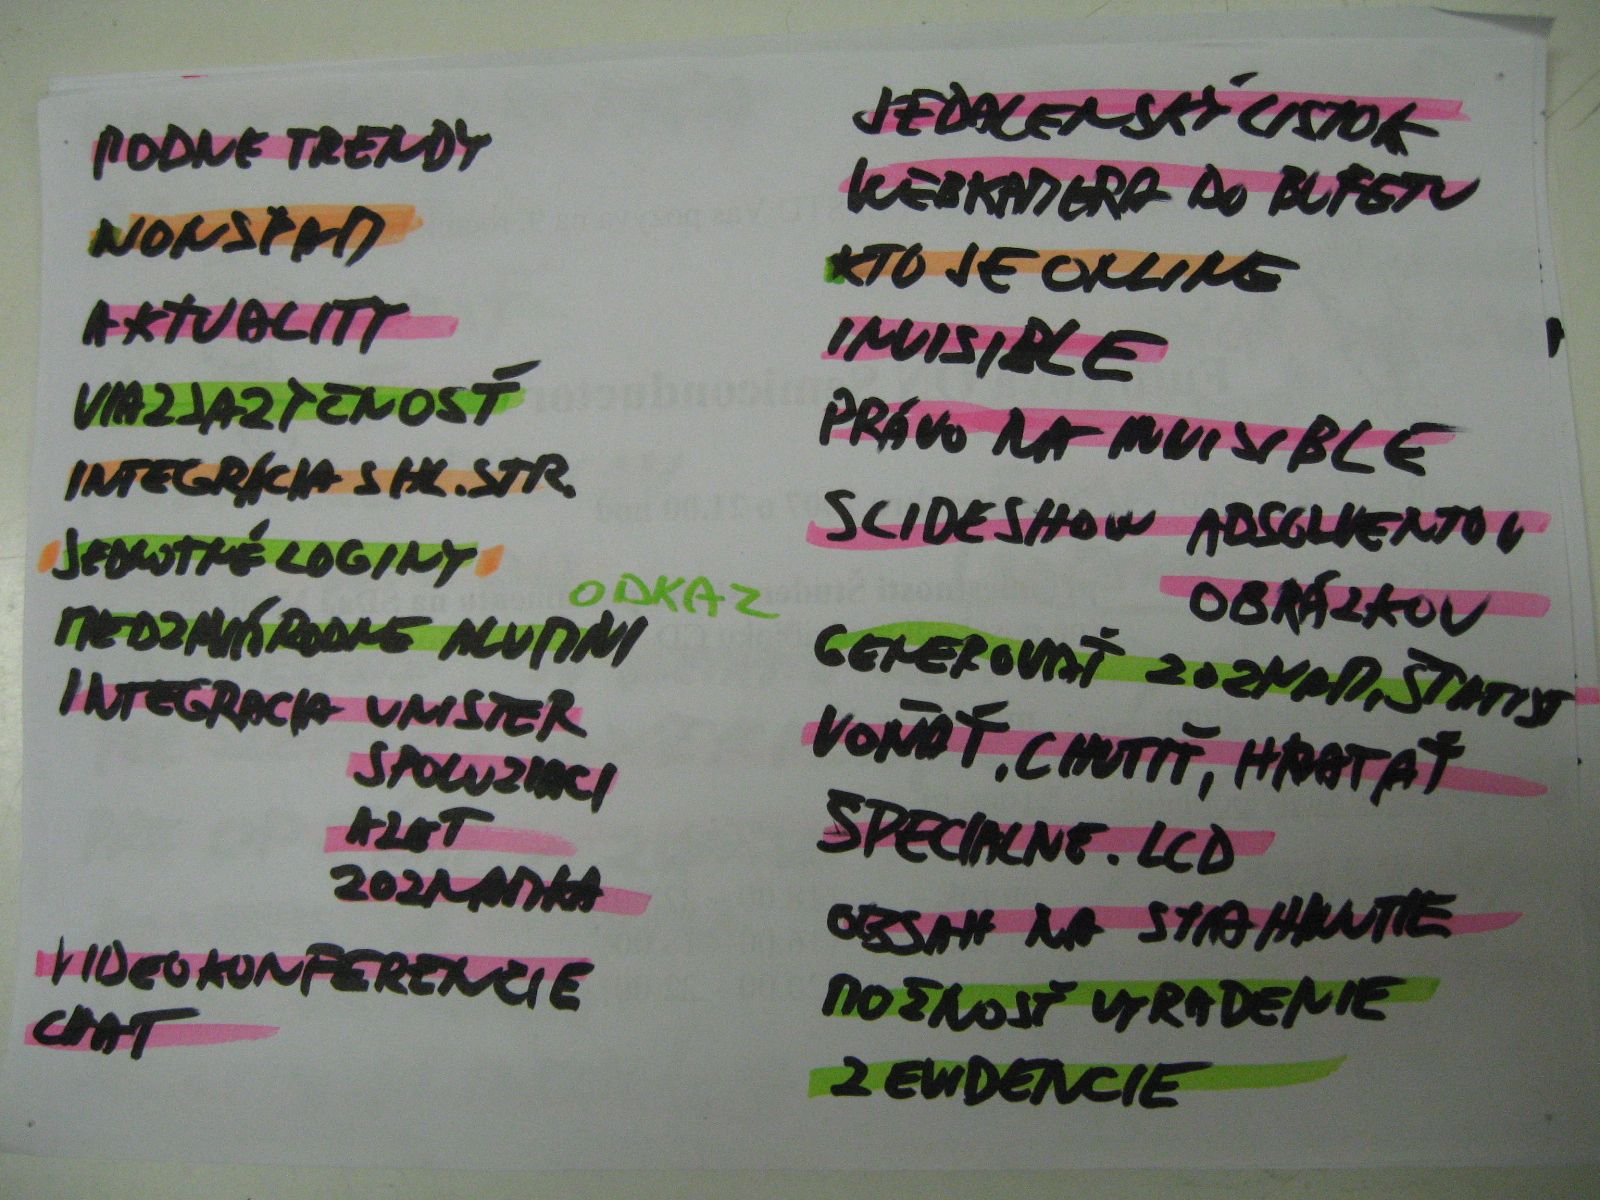 MODNE TRENDY
NONSPAM
AKTUALITY
VIAZJAZYČNOSŤ
INTEGRÁCIA S HL. STR.
JEDNOTNÉ LOGINY
ODKAZ
MEDZINÁRODNE ALUMNI
INTEGRACIA UMSTER
SPOLUZIACI
AZET
ZOZNAMKA
VIDEOKONFERENCIE
CHAT
JEDALENSKÝ LISTOK
WEBKAMERA DO BUFETU
KTO JE ONLINE
INVISIBLE
PRÁVO NA INVISIBLE
SLIDESHOW ABSOLVENTOV
OBRÁZKOV
GENEROVAŤ ZOZNAM, ŠTATIST
VOŇAŤ, CHUTIŤ, HMATAŤ
ŠPECIALNE. LCD
OBSAH NA STIAHNUTIE
MOŽNOSŤ VYRADENIE
Z EVIDENCIE